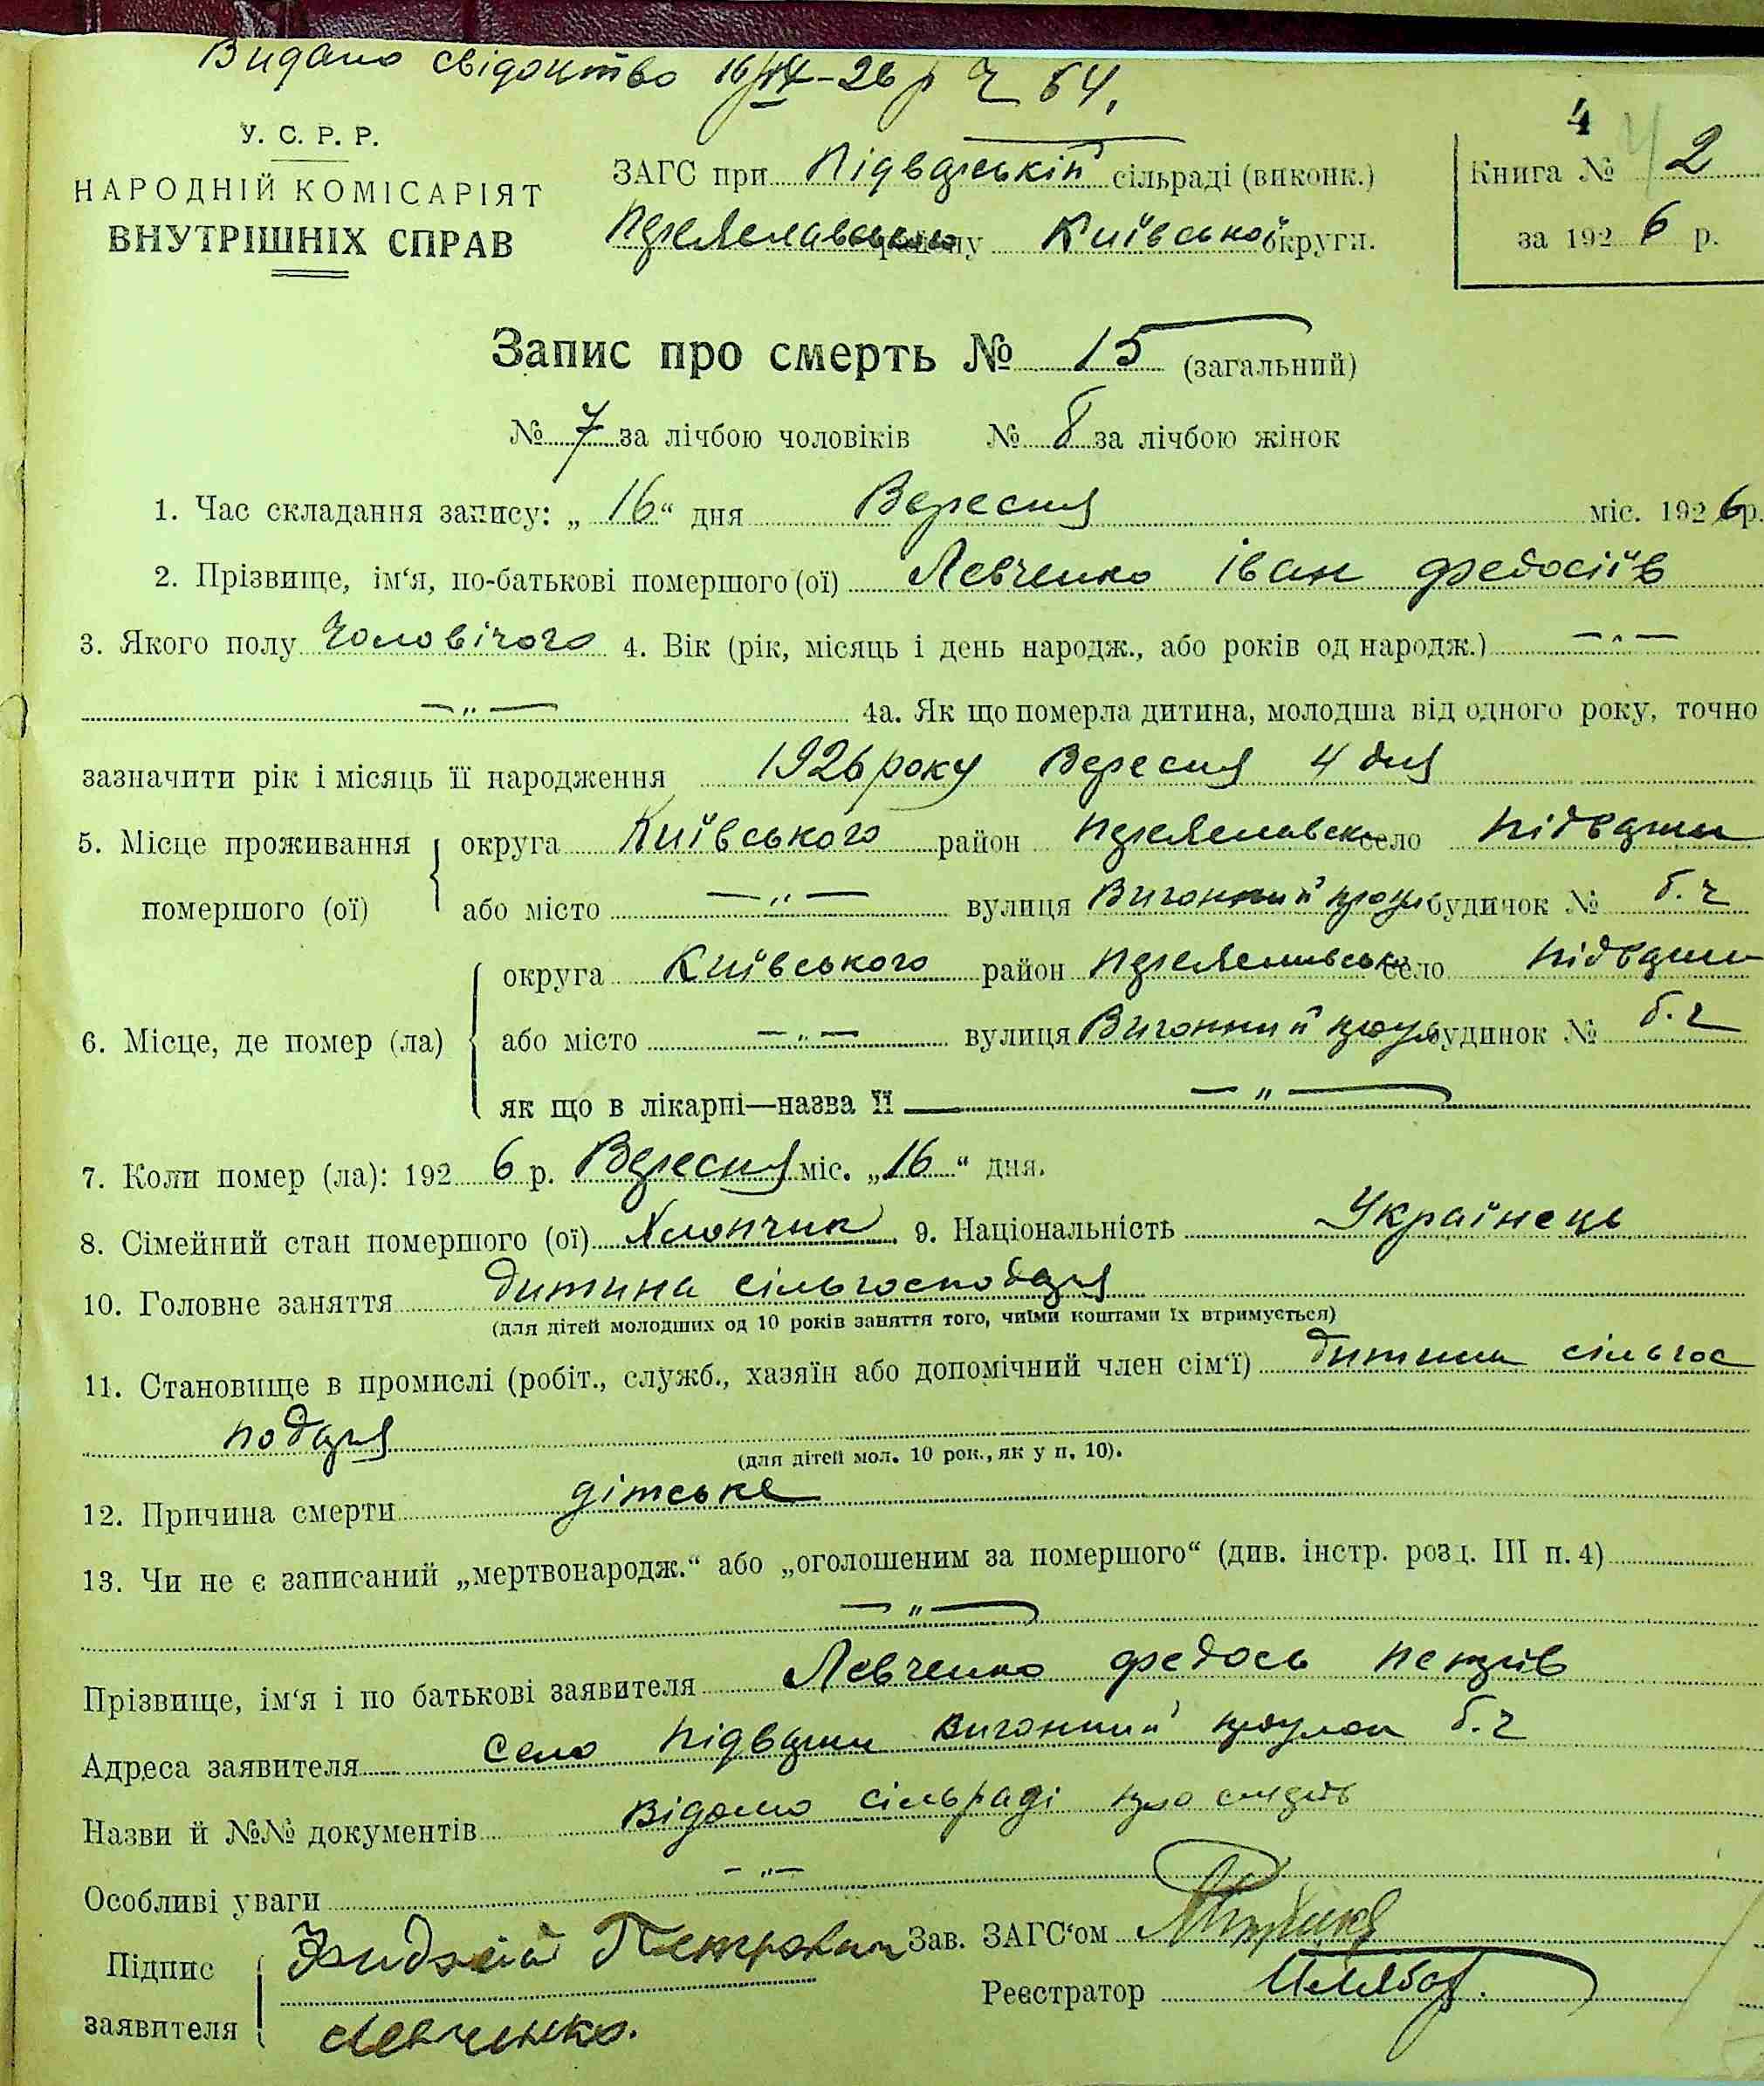 Видано свідоцтво 16/IX–26 р Ч 64.
4
У. С. Р. Р.
НАРОДНІЙ КОМІСАРІЯТ
ВНУТРІШНІХ СПРАВ
ЗАГС при Підварській сільраді (виконк.)
Переяславського району Київської округи.
Книга № 2
за 1926 р.
Запис про смерть № 15 (загальний)
№ 7 за лічбою чоловіків № 8 за лічбою жінок
1. Час складання запису: „16“ дня Вересня міс. 1926р.
2. Прізвище, ім‘я, по-батькові помершого (ої) Левченко Іван Федосіїв
3. Якого полу Чоловічого 4. Вік (рік, місяць і день народж., або років од народж.) — „ —
— „ — 4а. Як що померла дитина, молодша від одного року, точно
зазначити рік і місяць її народження 1926 року Вересня 4 дня
5. Місце проживання помершого (ої) округа Київського район Переяславськ село Підварки
або місто — „ — вулиця Вигонний проул будинок № б.ч
6. Місце, де помер (ла) округа Київського район Переяславськ село Підварки
або місто — „ — вулиця Вигонний проул будинок № б.ч
як що в лікарні—назва її — „ —
7. Коли помер (ла): 1926 р. Вересня міс. „16“ дня.
8. Сімейний стан помершого (ої) Хлопчик 9. Національність Українець
10. Головне заняття дитина сільгосподаря
(для дітей молодших од 10 років заняття того, чиїми коштами їх втримується)
11. Становище в промислі (робіт., служб., хазяїн або допомічний член сім‘ї) дитина сільгос
подаря
(для дітей мол. 10 рок., як у п. 10).
12. Причина смерти дітське
13. Чи не є записаний „мертвонародж.“ або „оголошеним за помершого“ (див. інстр. розд. III п. 4)
— „ —
Прізвище, ім‘я і по батькові заявителя Левченко Федось Петрів
Адреса заявителя село Підварки Вигонний проулок б.ч
Назви й №№ документів Відомо сільраді про смерть
Особливі уваги — „ —
Підпис заявителя Петрович
Левченко.
Зав. ЗАГС‘ом
Реєстратор